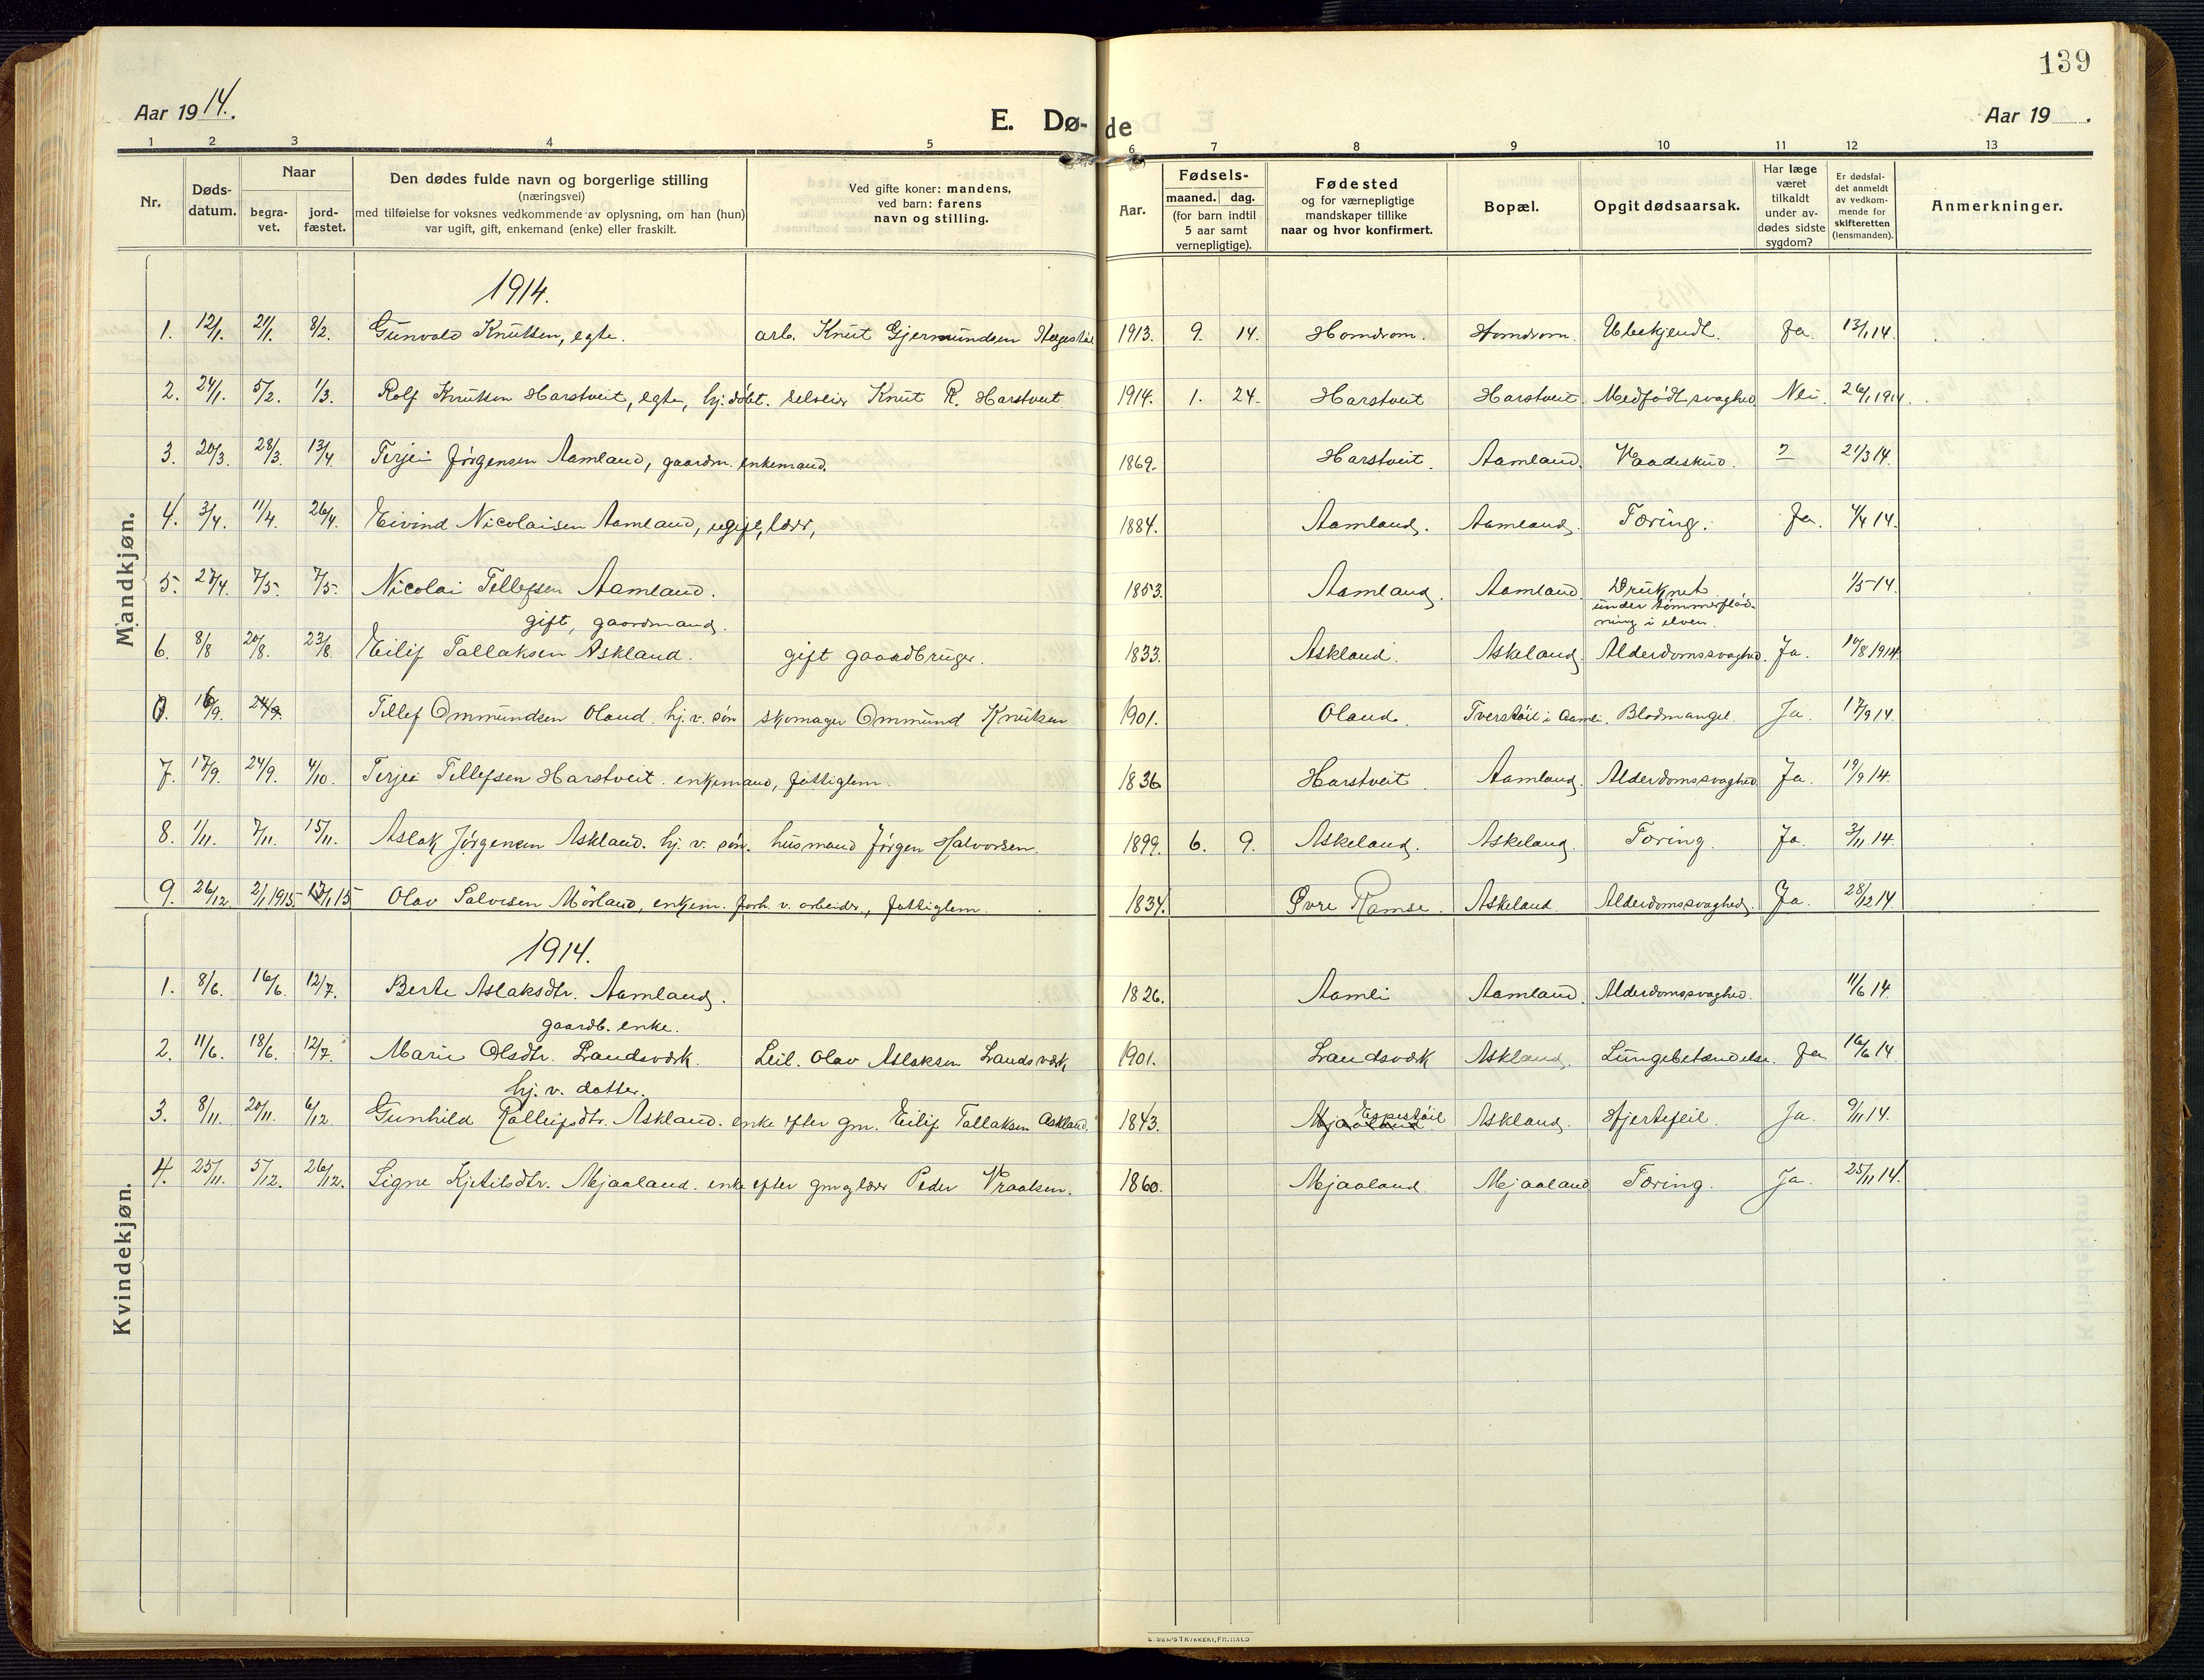 139
Aar 1914.
E. Dø-de
Aar 19 .
1 2 3 4 5 6 7 8 9 10 11 12 13
Nr.
Døds-
datum.
Naar
begra-
vet.
jord-
fæstet.
Den dødes fulde navn og borgerlige stilling
(næringsvei)
med tilføielse for voksnes vedkommende av oplysning, om han (hun)
var ugift, gift, enkemand (enke) eller fraskilt.
Ved gifte koner: mandens,
ved barn: farens
navn og stilling.
Aar.
Fødsels-
maaned. dag.
(for barn indtil
5 aar samt
vernepligtige).
Fødested
og for værnepligtige
mandskaper tillike
naar og hvor konfirmert.
Bopæl.
Opgit dødsaarsak.
Har læge
været
tilkaldt
under av-
dødes sidste
sygdom?
Er dødsfal-
det anmeldt
av vedkom-
mende for
skifteretten
(lensmanden).
Anmerkninger.
Mandkjøn.
1914.
1. 12/1. 21/1. 8/2. Gunvald Knutsen, egte. arb. Knut Gjermundsen Hagestøl 1913. 9. 14. Homdrom. Homdrom. Ubekjendt. Ja. 13/1 14.
2. 24/1. 5/2. 1/3. Rolf Knutsen Harstveit, egte, hj.døbt. selveier Knut R. Harstveit 1914. 1. 24. Harstveit Harstveit Medfødt svaghed Nei. 26/1 1914.
3. 20/3. 28/3. 13/4. Terjei Jørgensen Aamland, gaardm. enkemand. 1869. Harstveit. Aamland. Vaadeskud. ? 21/3 14.
4. 3/4. 11/4. 26/4. Eivind Nicolaisen Aamland, ugift, lærer, 1884. Aamland. Aamland. Tæring. Ja. 4/4 14.
5. 27/4. 7/5. 7/5. Nicolai Tellefsen Aamland. 1853. Aamland. Aamland. Druknet 1/5 14.
gift, gaardmand. under tømmerflød-
ning i elven.
6. 8/8 20/8. 23/8. Eilif Tallaksen Askland. gift gaardbruger. 1833. Askland. Askeland. Alderdomssvaghed. Ja. 10/8 1914.
0. 16/9. 24/9. Tellef Ommundsen Oland. hj. v. søn skomager Ommund Knutsen 1901. Oland. Tverstøil i Aamli. Blodmangel. Ja. 17/9 14.
7. 17/9. 24/9. 4/10. Terjei Tellefsen Harstveit. enkemand, fattiglem. 1836 Harstveit. Aamland. Alderdomssvaghed Ja. 19/9 14.
8. 1/11. 7/11. 15/11. Aslak Jørgensen Askland. hj. v. søn. husmand Jørgen Halvorsen. 1899. 6. 9. Askeland. Askeland. Tæring. Ja. 3/11 14.
9. 26/12. 2/1 1915. 17/1 15 Olav Salvesen Mørland, enkem. forh. v. arbeider, fattiglem. 1834. Øvre Ramse. Askeland. Alderdomssvaghed. Ja. 28/12 14.
Kvindekjøn.
1914.
1. 8/6. 16/6. 12/7. Berte Aslaksdtr. Aamland. 1826. Aamli Aamland. Alderdomssvaghed. 11/6 14.
gaardb. enke.
2. 11/6. 18/6. 12/7. Marie Olsdtr. Landsværk. Leil. Olav Aslaksen Landsværk 1901. Landsværk Askland. Lungebetændelse. Ja 16/6 14.
hj. v. datter.
3. 8/11. 20/11. 6/12. Gunhild Rolleifsdtr. Askland. enke efter gm. Eilif Tallaksen Askland. 1843. Mjaaland Espestøil Askland. Hjertefeil. Ja. 9/11 14.
4. 25/11. 5/12. 26/12. Signe Kjetilsdtr. Mjaaland. enke efter gm og lærer Peder Vraalsen. 1860. Mjaaland. Mjaaland Tæring. Ja. 25/11 14.